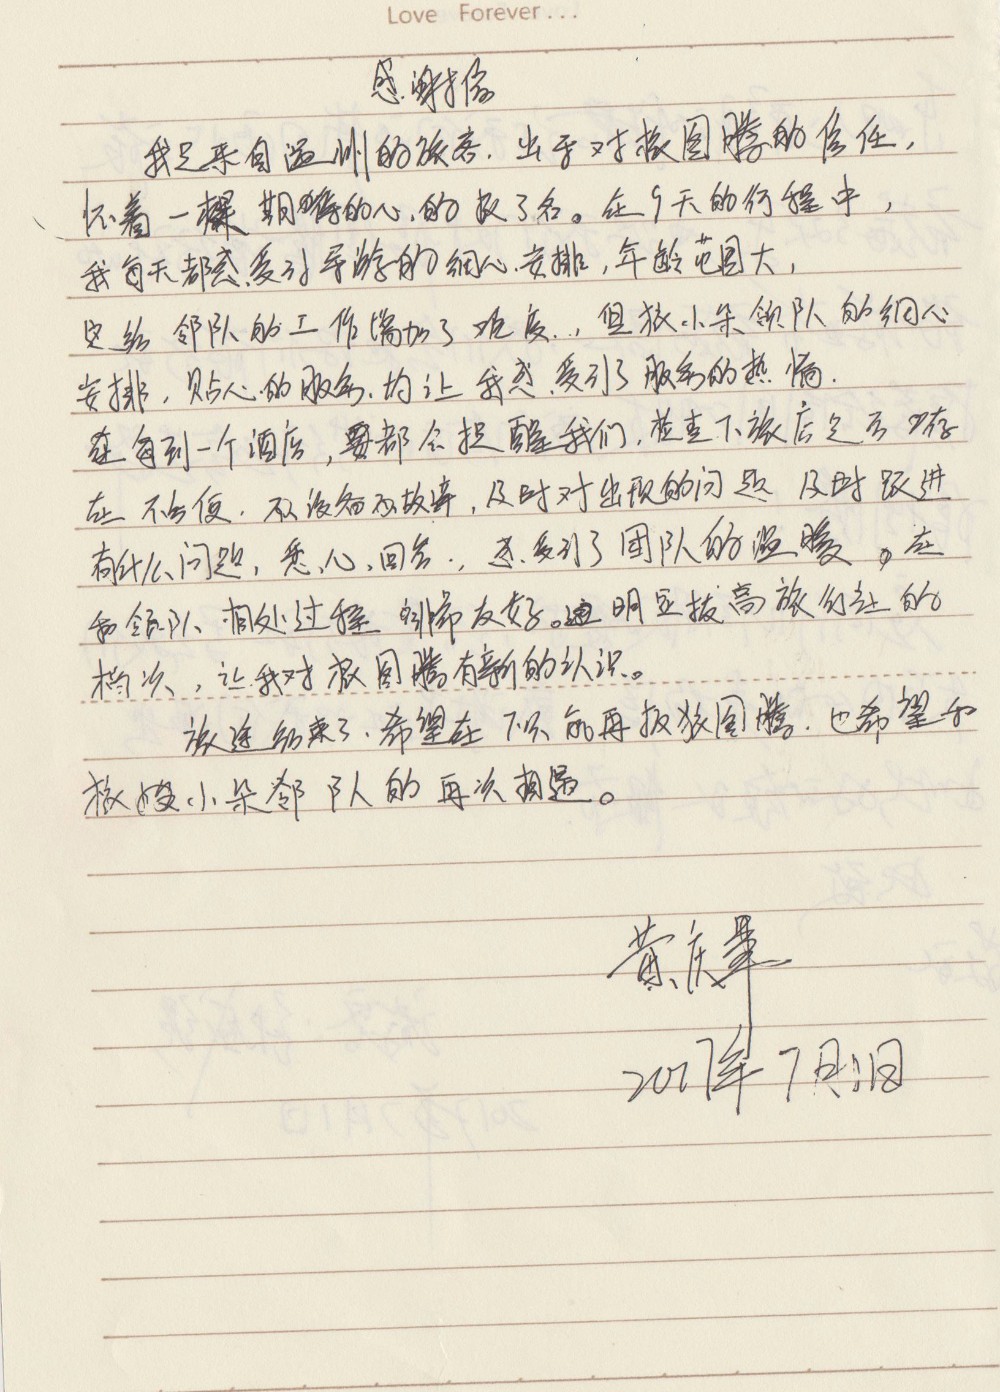 Love Forever...
感谢信
我是来自温州的旅客，出于对狼图腾的信任，
怀着一棵期待的心的报了名。在9天的行程中，
我每天都感受到导游的细心安排，年龄范围大，
更给邻队的工作增加了难度..，但狼小朵领队的细心
安排，贴心的服务，均让我感受到了服务的热情.
在每到一个酒店，都会提醒我们，检查下旅店是否存
在不方便. 及时对出现的问题及时跃进
有什么问题，悉心回答.，感受到了团队的温暖。在
和领队相处过程 友好。明显拔高旅行社的
档次，让我对狼图腾有新的认识。
旅途结束了.希望在下次能再报狼图腾.也希望和
狼小朵邻队的再次相遇。
黄庆
2017年7月1日